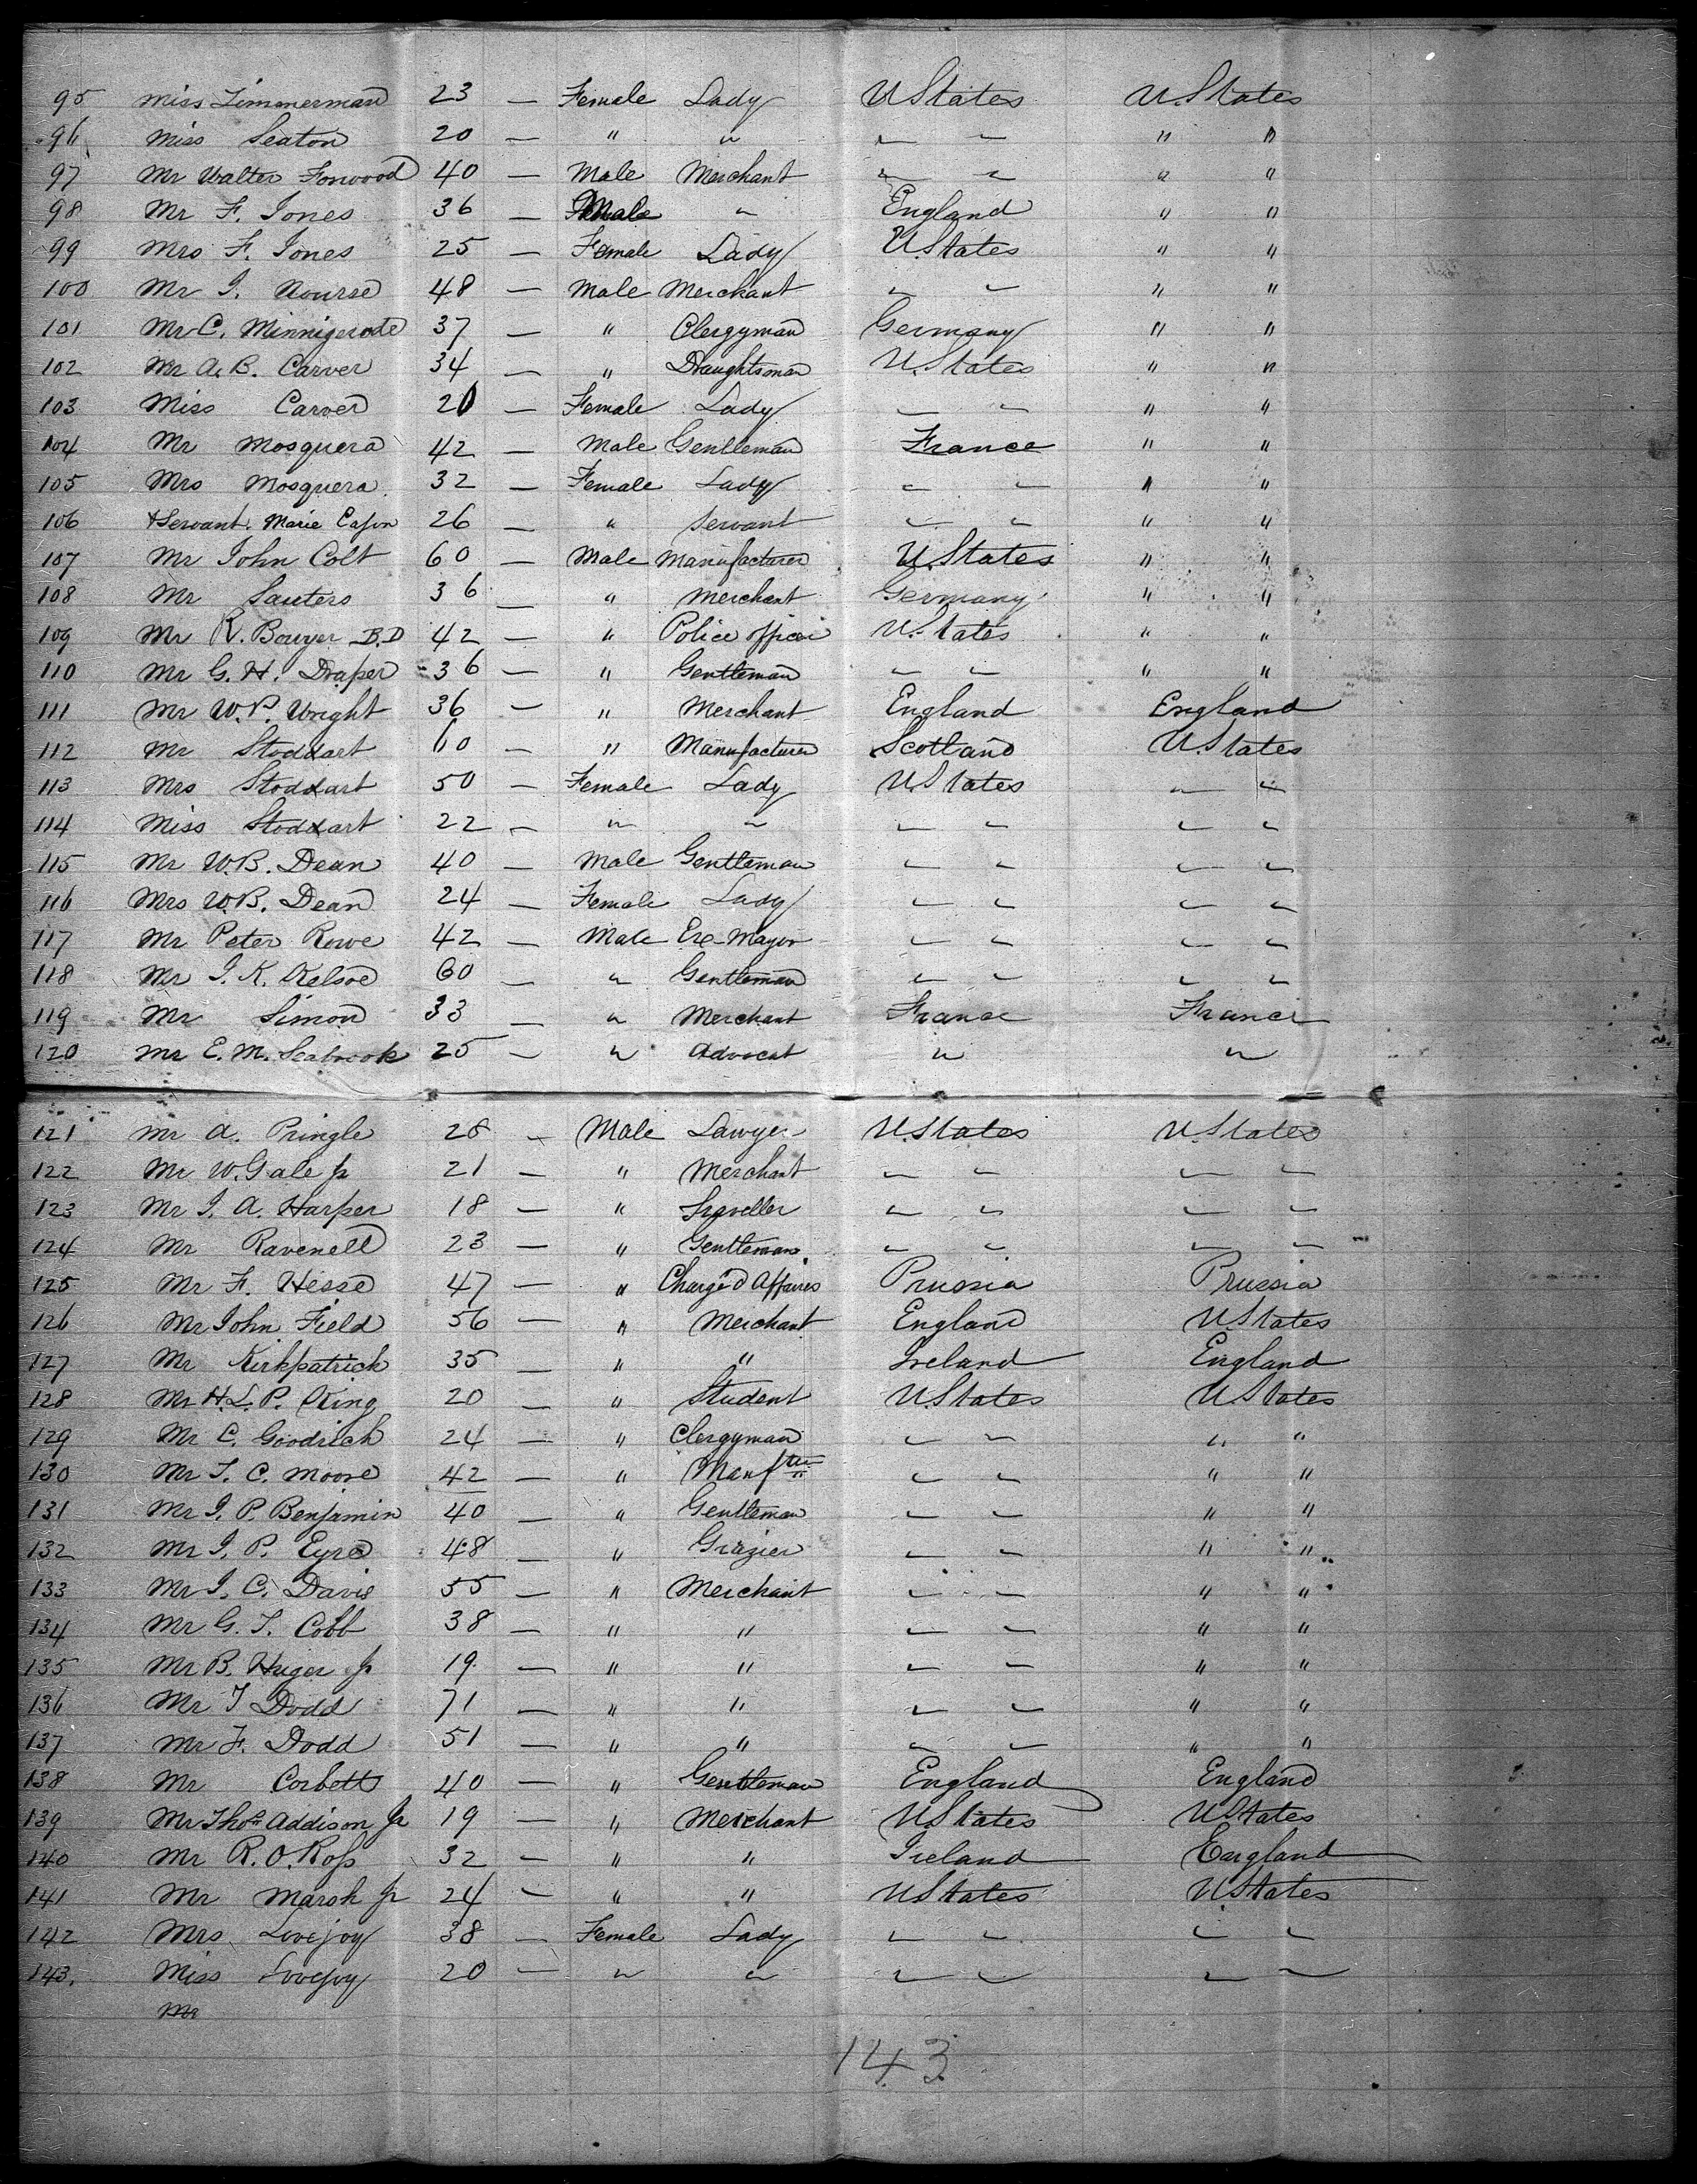 95 Miss Zimmerman 23 — Female Lady U States U. States
96 Miss Seaton 20 — " " " " " "
97 Mr Walter Forwood 40 — Male Merchant " " " "
98 Mr F. Jones 36 — Male " England " "
99 Mrs F. Jones 25 — Female Lady U. States " "
100 Mr J. Nourse 48 — Male Merchant " " " "
101 Mr C. Minnigerode 37 — " Clergyman Germany " "
102 Mr A. B. Carver 34 — " Draughtsman U. States " "
103 Miss Carver 20 — Female Lady " " " "
104 Mr Mosquera 42 — Male Gentleman France " "
105 Mrs Mosquera 32 — Female Lady " " " "
106 & Servant. Marie 26 — " Servant " " " "
107 Mr John Colt 60 — Male Manufacturer U. States " "
108 Mr Sauters 36 — " Merchant Germany " "
109 Mr R. Bowyer B.D 42 — " Police officer U. States " "
110 Mr G. H. Draper 36 — " Gentleman " " " "
111 Mr W. P. Wright 36 — " Merchant England England
112 Mr Stoddart 60 — " Manufacturer Scotland U States
113 Mrs Stoddart 50 — Female Lady U. States " "
114 Miss Stoddart 22 — " " " " " "
115 Mr W. B. Dean 40 — Male Gentleman " " " "
116 Mrs W. B. Dean 24 — Female Lady " " " "
117 Mr Peter Rowe 42 — Male Ex-Mayor " " " "
118 Mr J. K. Kelsoe 60 — " Gentleman " " " "
119 Mr Simon 33 — " Merchant France France
120 Mr E. M. Seabrook 25 — " Advocat " "
121 Mr A. Pringle 28 — Male Lawyer U. States U. States
122 Mr W. Gale Jr 21 — " Merchant " " " "
123 Mr J. A. Harper 18 — " Traveller " " " "
124 Mr Ravenell 23 — " Gentleman " " " "
125 Mr F. Hesse 47 — " Chargé d Affaires Prussia Prussia
126 Mr John Field 56 — " Merchant England U. States
127 Mr Kirkpatrick 35 — " " Ireland England
128 Mr H. L. P. King 20 — " Student U. States U. States
129 Mr C. Goodrich 24 — " Clergyman " " " "
130 Mr T. C. Moore 42 — " Manftur " " " "
131 Mr J. P. Benjamin 40 — " Gentleman " " " "
132 Mr J. P. Eyre 48 — " Grazier " " " "
133 Mr J. C. Davis 55 — " Merchant " " " "
134 Mr G. T. Cobb 38 — " " " " " "
135 Mr B. Huger Jr 19 — " " " " " "
136 Mr T Dodd 71 — " " " " " "
137 Mr F. Dodd 51 — " " " " " "
138 Mr Corbett 40 — " Gentleman England England
139 Mr Thos Addison Jr 19 — " Merchant U. States U States
140 Mr R. O. Ross 32 — " " Ireland England
141 Mr Marsh Jr 24 — " " U States U States
142 Mrs Lovejoy 38 — Female Lady " " " "
143. Miss Lovejoy 20 — " " " " " "
Mr
143